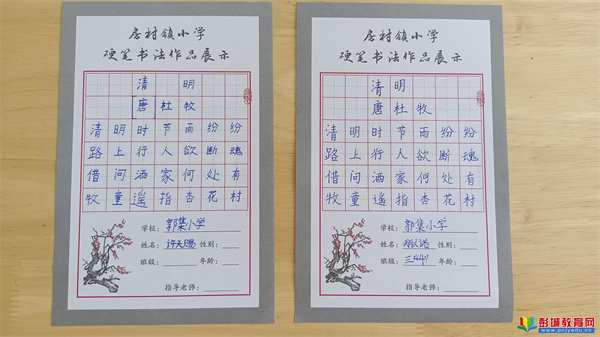 房村镇小学
硬笔书法作品展示
清 明
唐 杜 牧
清 明 时 节 雨 纷 纷
路 上 行 人 欲 断 魂
借 问 酒 家 何 处 有
牧 童 遥 指 杏 花 村
学校：郭集小学
姓名：许天赐 性别：
班级： 年龄：
指导老师：
房村镇小学
硬笔书法作品展示
清 明
唐 杜 牧
清 明 时 节 雨 纷 纷
路 上 行 人 欲 断 魂
借 问 酒 家 何 处 有
牧 童 遥 指 杏 花 村
学校：郭集小学
姓名： 性别：
班级： 年龄：
指导老师：
彭城教育网
www.pcjyedu.cn